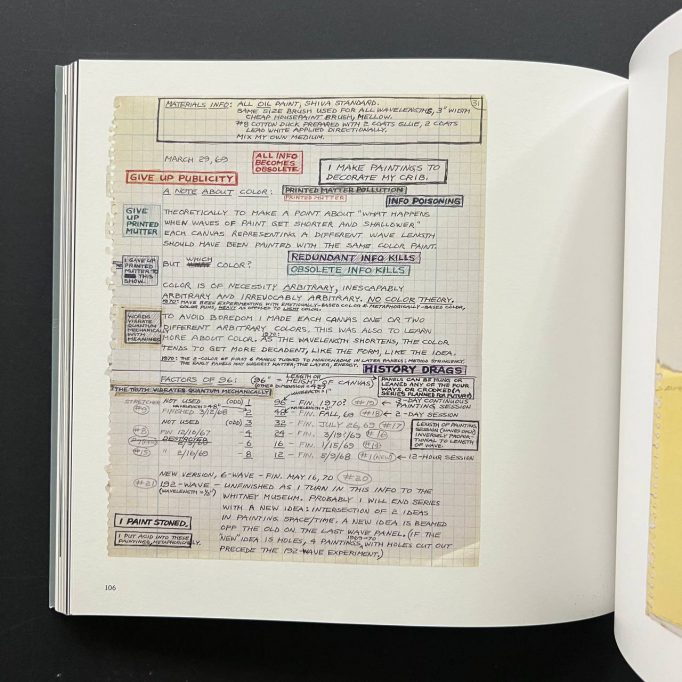 MATERIALS INFO: ALL OIL PAINT, SHIVA STANDARD. 31
SAME SIZE BRUSH USED FOR ALL WAVELENGTHS, 3" WIDTH
CHEAP HOUSEPAINT BRUSH, MELLOW.
#8 COTTON DUCK PREPARED WITH 2 COATS GLUE, 2 COATS
LEAD WHITE APPLIED DIRECTIONALLY.
MIX MY OWN MEDIUM.
MARCH 29, 69
ALL INFO
BECOMES
OBSOLETE.
I MAKE PAINTINGS TO
DECORATE MY CRIB.
GIVE UP PUBLICITY
A NOTE ABOUT COLOR:
PRINTED MATTER POLLUTION
PRINTED MUTTER
INFO POISONING
GIVE
UP
PRINTED
MUTTER
THEORETICALLY TO MAKE A POINT ABOUT "WHAT HAPPENS
WHEN WAVES OF PAINT GET SHORTER AND SHALLOWER"
EACH CANVAS REPRESENTING A DIFFERENT WAVE LENGTH
SHOULD HAVE BEEN PAINTED WITH THE SAME COLOR PAINT.
I GAVE UP
PRINTED
MUTTER TO
THIS
SHOW.
BUT WHICH COLOR?
REDUNDANT INFO KILLS
OBSOLETE INFO KILLS
COLOR IS OF NECESSITY ARBITRARY, INESCAPABLY
ARBITRARY AND IRREVOCABLY ARBITRARY. NO COLOR THEORY.
1970: HAVE BEEN EXPERIMENTING WITH EMOTIONALLY-BASED COLOR & METAPHORICALLY-BASED COLOR,
COLOR PUNS, HEAVY AS OPPOSED TO LIGHT COLOR.
WORDS
VIBRATE
QUANTUM
MECHANICALLY
WITH
MEANINGS
TO AVOID BOREDOM I MADE EACH CANVAS ONE OR TWO
DIFFERENT ARBITRARY COLORS. THIS WAS ALSO TO LEARN
MORE ABOUT COLOR. 1970: AS THE WAVELENGTH SHORTENS, THE COLOR
TENDS TO GET MORE DECADENT, LIKE THE FORM, LIKE THE IDEA.
1970: THE 2-COLOR OF FIRST 6 PANELS TURNED TO MONOCHROME IN LATER PANELS: METHOD STRINGENCY.
THE EARLY PANELS MAY SUGGEST MATTER; THE LATER, ENERGY.
HISTORY DRAGS
FACTORS OF 96: (96" = HEIGHT OF CANVAS)
LENGTH OR
THE TRUTH VIBRATES QUANTUM MECHANICALLY
PANELS CAN BE HUNG OR
LEANED ANY OF THE FOUR
WAYS, OR CROOKED (A
SERIES PLANNED FOR FUTURE)
STRETCHER NOT USED (ODD) 1 96 - FIN. 1970? #19 ← 3-DAY CONTINUOUS
PAINTING SESSION
FINISHED 3/12/68 2 48 - FIN. FALL, 69 #18 ← 2-DAY SESSION
NOT USED (ODD) 3 32 - FIN. JULY 26, 69 #17
#8 FIN. 12/10/67 - 4 24 - FIN. 3/19/69 #16
DESTROYED
- 6 16 - FIN. 1/15/69
#15 " 2/10/69 - 8 12 - FIN. 5/9/68 #1 (NEW) ← 12-HOUR SESSION
LENGTH OF PAINTING
SESSION (WAVES ONLY)
INVERSELY PROPOR-
TIONAL TO LENGTH
OF WAVE.
NEW VERSION, 6-WAVE - FIN. MAY 16, 70 #20
#21 192-WAVE - UNFINISHED AS I TURN IN THIS INFO TO THE
(WAVELENGTH = ½")
WHITNEY MUSEUM. PROBABLY I WILL END SERIES
WITH A NEW IDEA: INTERSECTION OF 2 IDEAS
IN PAINTING SPACE/TIME. A NEW IDEA IS BEAMED
OFF THE OLD ON THE LAST WAVE PANEL. (IF THE
"NEW" IDEA IS HOLES, 4 PAINTINGS, 1969-70 WITH HOLES CUT OUT
PRECEDE THE 192-WAVE EXPERIMENT.)
I PAINT STONED.
I PUT ACID INTO THESE
PAINTINGS, METAPHORICALLY.
106